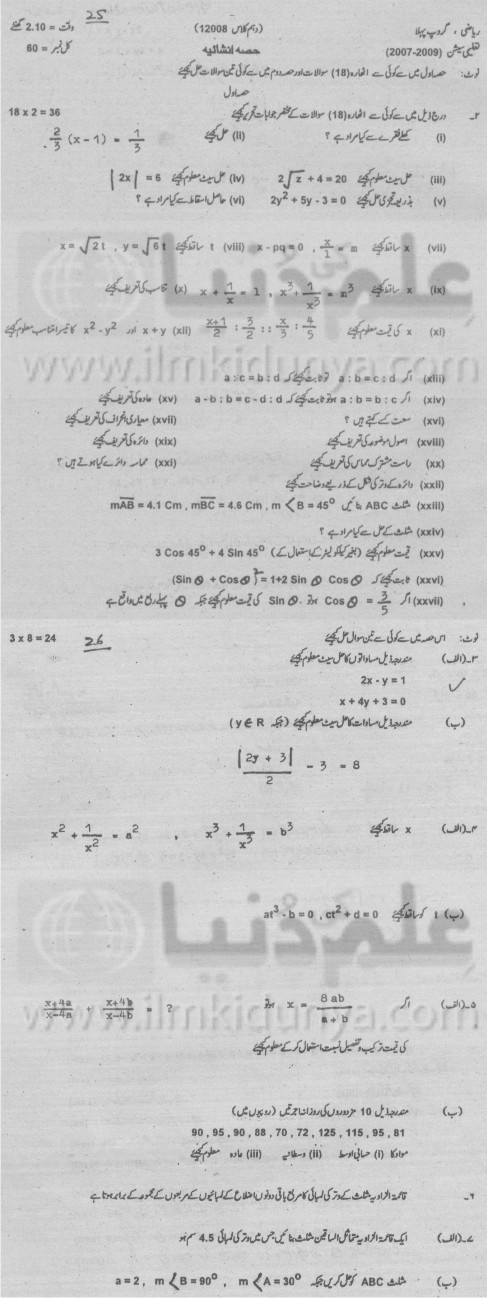 25
ریاضی ، گروپ پہلا (دہم کلاس 12008) وقت = 2.10 گھنٹے
تعلیمی سیشن (2007-2009) حصہ انشائیہ کل نمبر = 60
نوٹ: حصہ اول میں سے کوئی سے اٹھارہ (18) سوالات اور حصہ دوم میں سے کوئی تین سوالات حل کیجئے
حصہ اول
۲۔ درج ذیل میں سے کوئی سے اٹھارہ (18) سوالات کے مختصر جوابات تحریر کیجئے 18 x 2 = 36
(i) کھلے فقرے سے کیا مراد ہے ؟ (ii) حل کیجئے 2/3 (x - 1) = 1/3
(iii) حل سیٹ معلوم کیجئے 2√z + 4 = 20 (iv) حل سیٹ معلوم کیجئے |2x| = 6
(v) بذریعہ تجزی حل کیجئے 2y² + 5y - 3 = 0 (vi) حاصل اسقاط سے کیا مراد ہے ؟
(vii) x ساقط کیجئے x - pq = 0 , x/1 = m (viii) t ساقط کیجئے x = √2t , y = √6t
(ix) x ساقط کیجئے x + 1/x = 1 , x³ + 1/x³ = m³ (x) تناسب کی تعریف کیجئے
(xi) x کی قیمت معلوم کیجئے x+1/2 : 3/2 :: x/3 : 4/5 (xii) x + y اور x² - y² کا تیسرا تناسب معلوم کیجئے
(xiii) اگر a : b = c : d تو ثابت کیجئے کہ a : c = b : d
(xiv) اگر a : b = b : c ہو تو ثابت کیجئے کہ a - b : b = c - d : d (xv) عادہ کی تعریف کیجئے
(xvi) سعت کسے کہتے ہیں ؟ (xvii) معیاری انحراف کی تعریف کیجئے
(xviii) اصول موضوعہ کی تعریف کیجئے (xix) دائرہ کی تعریف کیجئے
(xx) راست مشترک مماس کی تعریف کیجئے (xxi) محاصر دائرے کیا ہوتے ہیں ؟
(xxii) دائرہ کے وتر کی شکل کے ذریعے وضاحت کیجئے
(xxiii) مثلث ABC بنائیں mAB = 4.1 Cm , mBC = 4.6 Cm , m < B = 45°
(xxiv) مثلث کے حل سے کیا مراد ہے ؟
(xxv) قیمت معلوم کیجئے (بغیر کیلکولیٹر کے استعمال کے) 3 Cos 45° + 4 Sin 45°
(xxvi) ثابت کیجئے کہ (Sin θ + Cos θ)² = 1+2 Sin θ Cos θ
(xxvii) اگر Cos θ = 3/5 ہو تو Sin θ کی قیمت معلوم کیجئے جبکہ θ پہلے ربع میں واقع ہے
نوٹ: اس حصہ میں سے کوئی سے تین سوال حل کیجئے 26 3 x 8 = 24
۳۔(الف) مندرجہ ذیل مساواتوں کا حل سیٹ معلوم کیجئے
2x - y = 1
x + 4y + 3 = 0
(ب) مندرجہ ذیل مساوات کا حل سیٹ معلوم کیجئے (جبکہ y ∈ R)
|2y + 3|/2 - 3 = 8
۴۔(الف) x ساقط کیجئے x² + 1/x² = a² , x³ + 1/x³ = b³
(ب) t کو ساقط کیجئے at³ - b = 0 , ct² + d = 0
۵۔(الف) اگر x = 8 ab/a + b ہو تو x+4a/x-4a + x+4b/x-4b = ?
کی قیمت ترکیب و تفصیل نسبت استعمال کر کے معلوم کیجئے
(ب) مندرجہ ذیل 10 مزدوروں کی روزانہ اجرتیں (روپوں میں)
90 , 95 , 90 , 88 , 70 , 72 , 125 , 115 , 95 , 81
مواد کا (i) حسابی اوسط (ii) وسطانیہ (iii) عادہ معلوم کیجئے
۶۔ قائمۃ الزاویہ مثلث کے وتر کی لمبائی کا مربع باقی دونوں اضلاع کے لمبائیوں کے مربعوں کے مجموعہ کے برابر ہوتا ہے
۷۔(الف) ایک قائمۃ الزاویہ متماثل الساقین مثلث بنائیں جس میں وتر کی لمبائی 4.5 سم ہو
(ب) مثلث ABC کو حل کریں جبکہ a = 2 , m < B = 90° , m < A = 30°
علم دُنیا
www.ilmkidunya.com
علم دُنیا
www.ilmkidunya.com